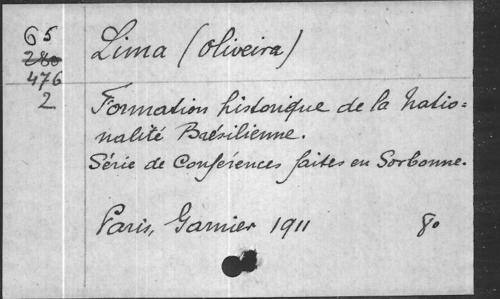 65
280
476
2
Lima (Oliveira)
Formation historique de la Natio=
nalité Brésilienne.
Série de Conférences faites en Sorbonne.
Paris, Garnier 1911 8o